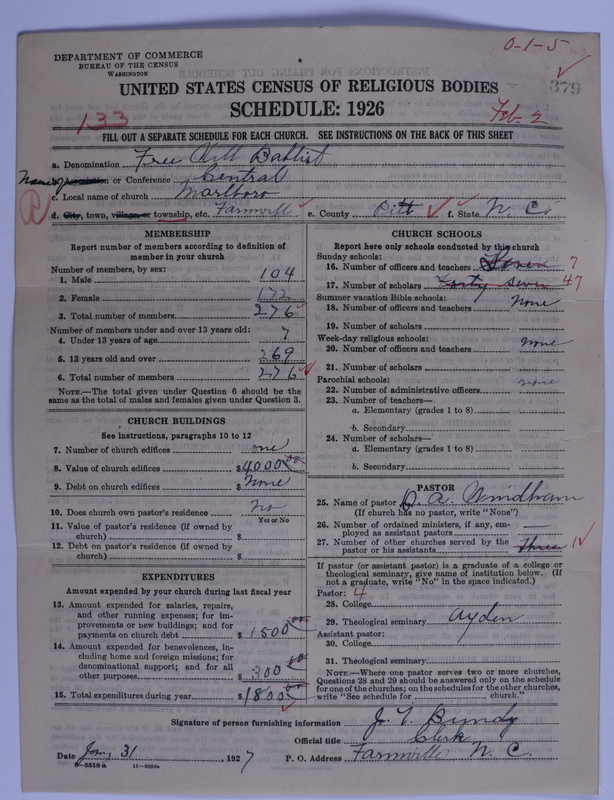 0-1-5
DEPARTMENT OF COMMERCE
BUREAU OF THE CENSUS
WASHINGTON
379
UNITED STATES CENSUS OF RELIGIOUS BODIES
SCHEDULE: 1926
133
Feb 2
FILL OUT A SEPARATE SCHEDULE FOR EACH CHURCH. SEE INSTRUCTIONS ON THE BACK OF THIS SHEET
a. Denomination Free Will Baptist
or Conference Central
c. Local name of church Marlboro
d. City, town, village, or township, etc. Farmville e. County Pitt f. State N. C.
MEMBERSHIP
Report number of members according to definition of
member in your church
Number of members, by sex:
1. Male 104
2. Female 172
3. Total number of members 276
Number of members under and over 13 years old:
4. Under 13 years of age 7
5. 13 years old and over 269
6. Total number of members 276
NOTE.—The total given under Question 6 should be the
same as the total of males and females given under Question 3.
CHURCH BUILDINGS
See instructions, paragraphs 10 to 12
7. Number of church edifices one
8. Value of church edifices $4000.00
9. Debt on church edifices $ None
10. Does church own pastor's residence No
Yes or No
11. Value of pastor's residence (if owned by
church) $
12. Debt on pastor's residence (if owned by
church) $
EXPENDITURES
Amount expended by your church during last fiscal year
13. Amount expended for salaries, repairs,
and other running expenses; for im-
provements or new buildings; and for
payments on church debt $1500.00
14. Amount expended for benevolences, in-
cluding home and foreign missions; for
denominational support; and for all
other purposes $300.00
15. Total expenditures during year $1800.00
CHURCH SCHOOLS
Report here only schools conducted by this church
Sunday schools:
16. Number of officers and teachers Seven 7
17. Number of scholars Forty Seven 47
Summer vacation Bible schools:
18. Number of officers and teachers None
19. Number of scholars
Week-day religious schools:
20. Number of officers and teachers None
21. Number of scholars
Parochial schools: None
22. Number of administrative officers
23. Number of teachers—
a. Elementary (grades 1 to 8)
b. Secondary
24. Number of scholars—
a. Elementary (grades 1 to 8)
b. Secondary
PASTOR
25. Name of pastor D. A. Windham
(If church has no pastor, write "None")
26. Number of ordained ministers, if any, em-
ployed as assistant pastors —
27. Number of other churches served by the
pastor or his assistants Three
If pastor (or assistant pastor) is a graduate of a college or
theological seminary, give name of institution below. (If
not a graduate, write "No" in the space indicated.)
Pastor: 4
28. College
29. Theological seminary Ayden
Assistant pastor:
30. College
31. Theological seminary
NOTE.—Where one pastor serves two or more churches,
Questions 28 and 29 should be answered only on the schedule
for one of the churches; on the schedules for the other churches,
write "See schedule for church."
Signature of person furnishing information J. T. Bundy
Official title Clerk
Date Jan, 31, 1927 P. O. Address Farmville N. C.
8-5518a 11-9034a